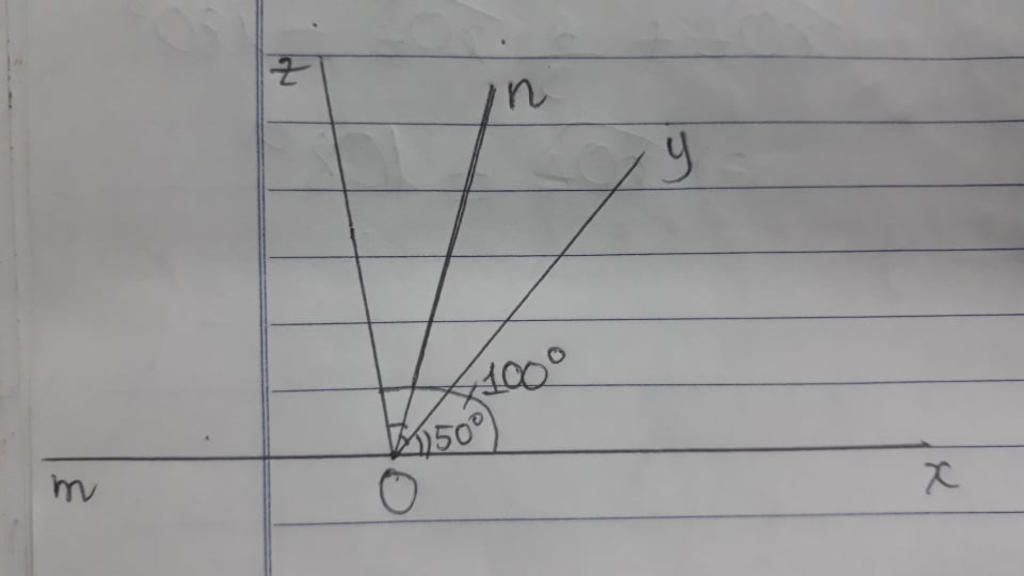 z
n
y
100°
50°
m
O
x